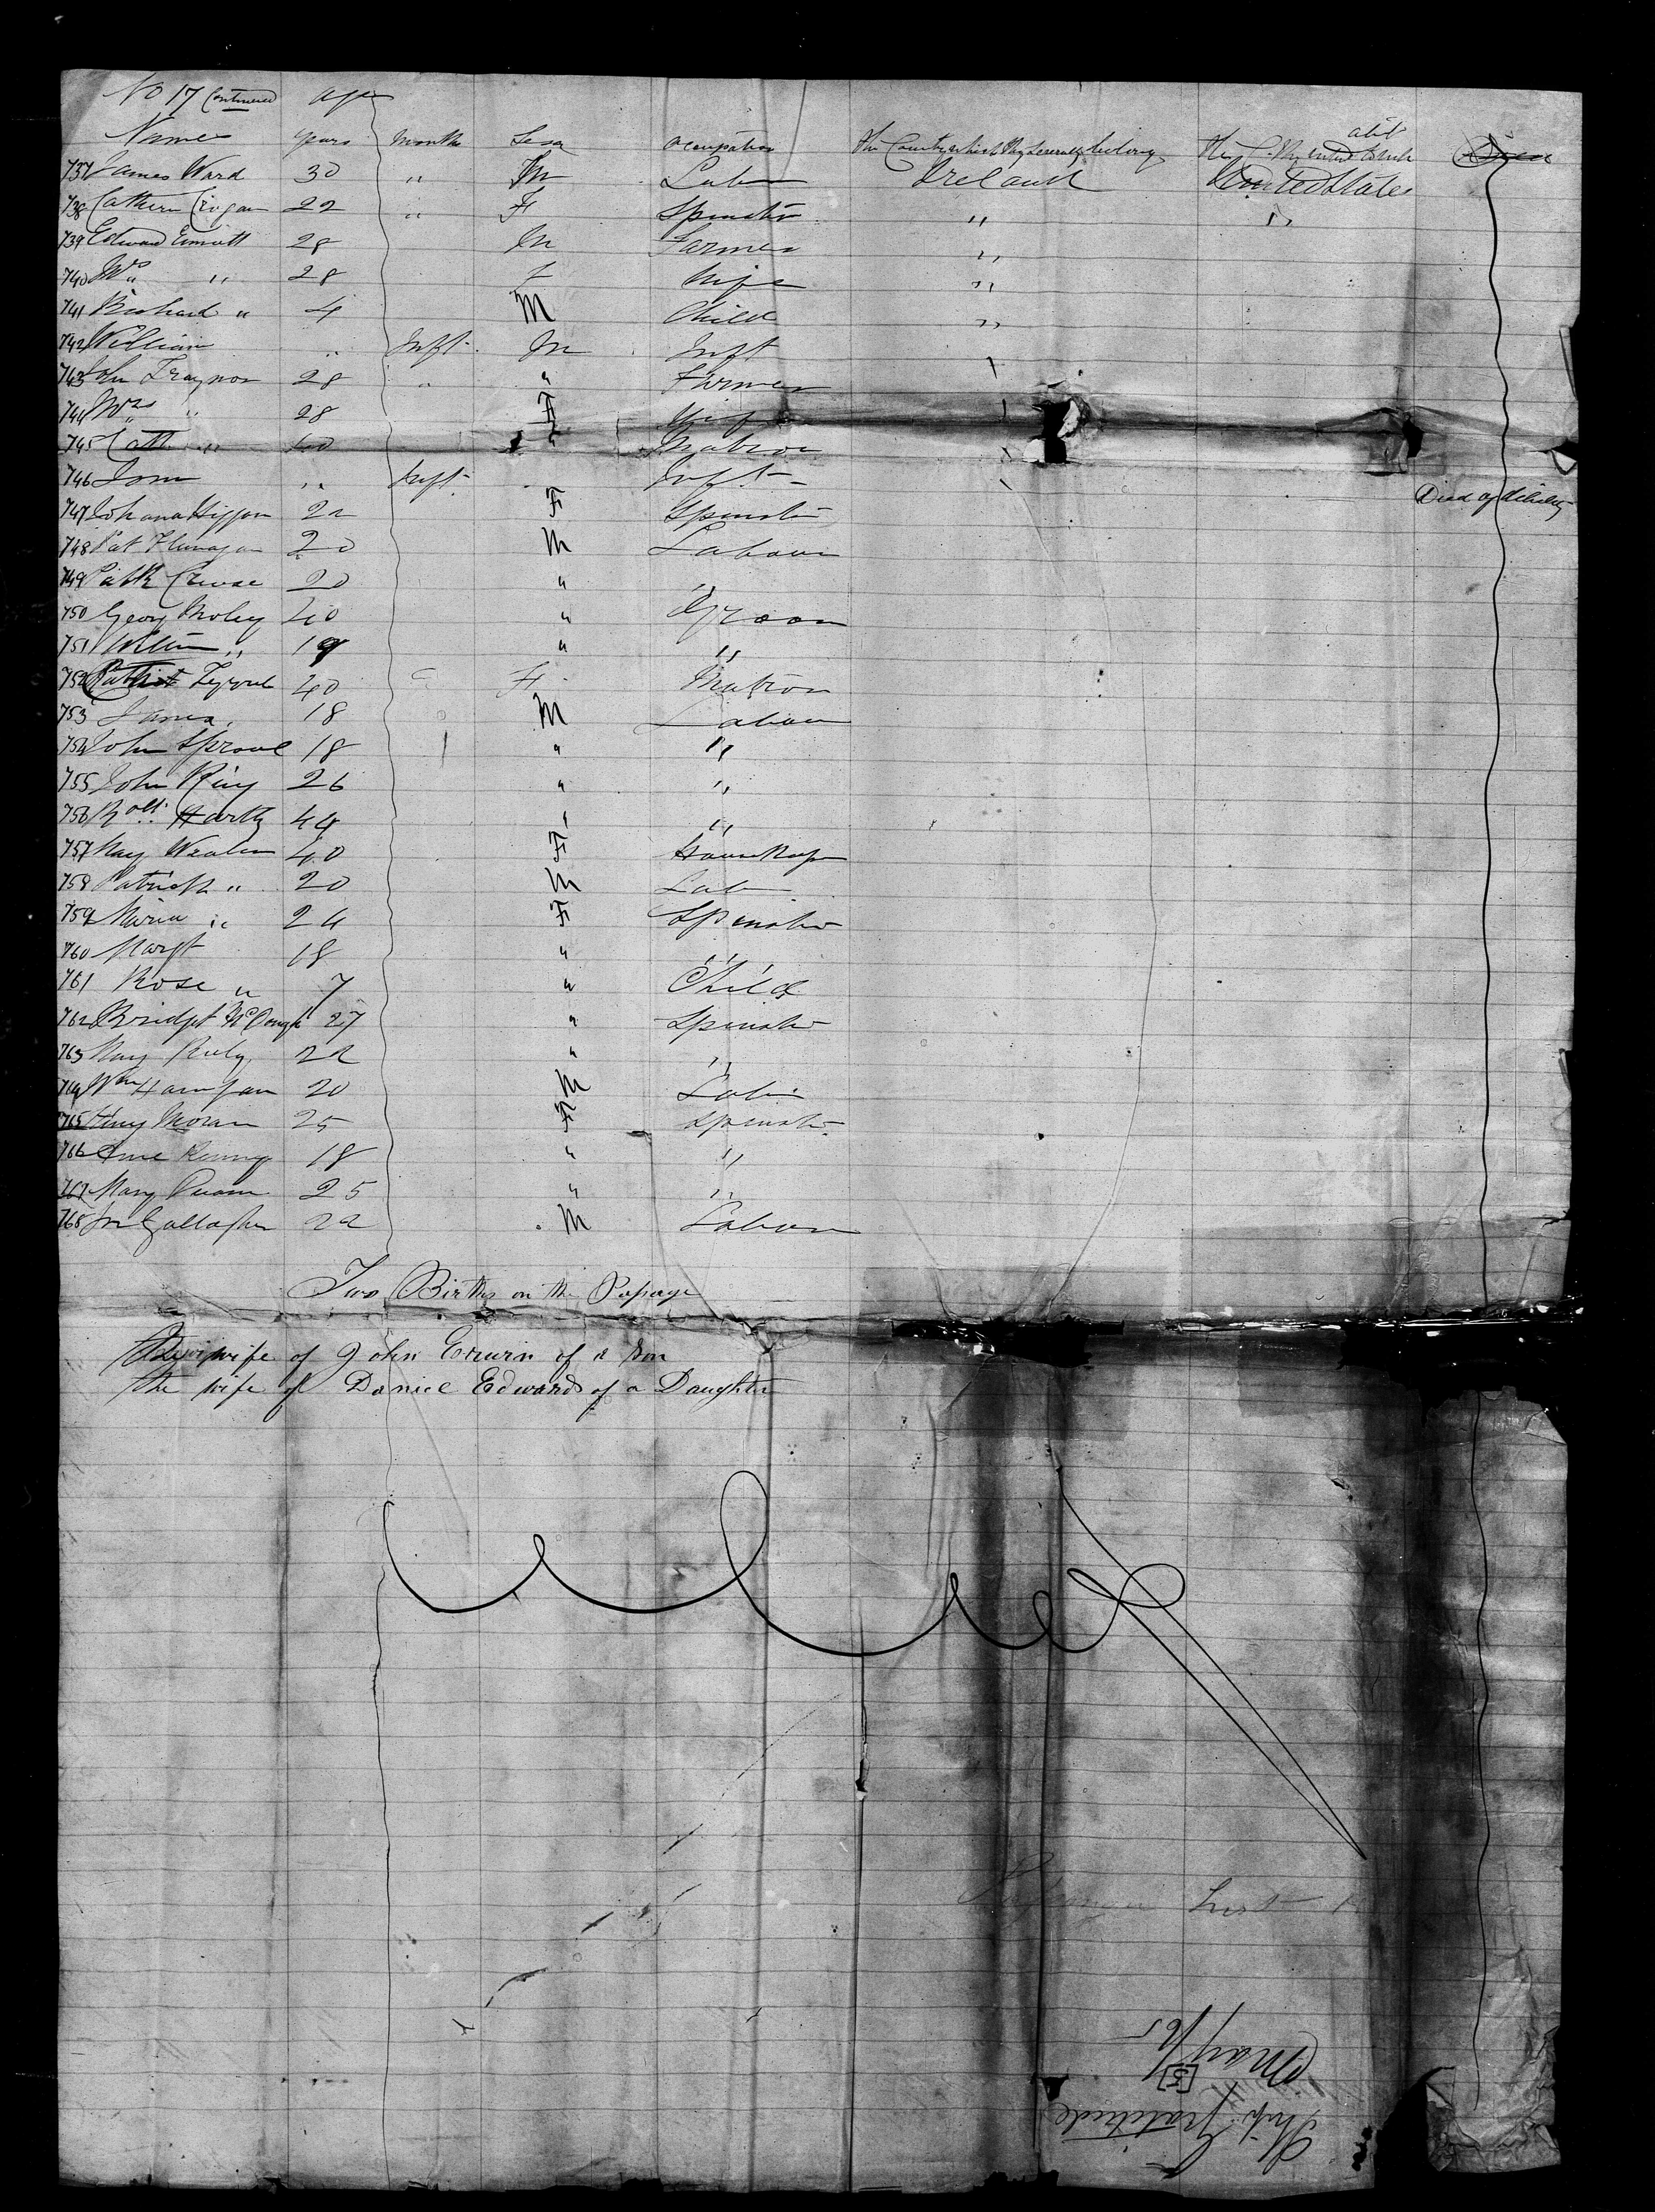 No 17 Continued age
Names years Month Sex Occupation the Country to which they severally belong the C. they intend to inhabit
737 James Ward 30 " M Labr Ireland United States
738 Cathern Crogan 22 " F Spinster " "
739 Edward Emmott 28 M Farmer "
740 Mrs " 28 F Wife "
741 Richard " 4 M Child "
742 William " Inft. M Inft
743 John Traynor 28 " " Farmer
744 Mrs " 28 F Wife
745 Cath " 40 " Matron
746 John " Inft. Inft Died of debility
747 Johana Higgan 22 F Spinster
748 Pat Flanagan 20 M Labour
749 Patk Cruose 20 " "
750 Georg Moley 40 " Groom
751 William " 19 " "
752 Tyrrel 40 F Matron
753 James 18 M Labour
754 John Sproul 18 " "
755 John King 26 " "
756 Robt. Hartly 44 " "
757 May 40 F House Keeper
758 Patrick " 20 M Lab
759 Maria " 24 F Spinster
760 Margt 18 " "
761 Rose " 7 " Child
762 Bridget McDonagh 27 " Spinster
763 May 22 " "
764 Wm Hannigan 20 M Labr
765 Moran 25 F Spinster
766 Anne 18 " "
767 Mary 25 " "
768 Jn Gallagher 22 M Labour
Two Births on the Passage
The wife of John Erwin of a Son
the wife of Daniel Edwards of a Daughter
Passenger List
Ship Gratitude
[5]
May/65